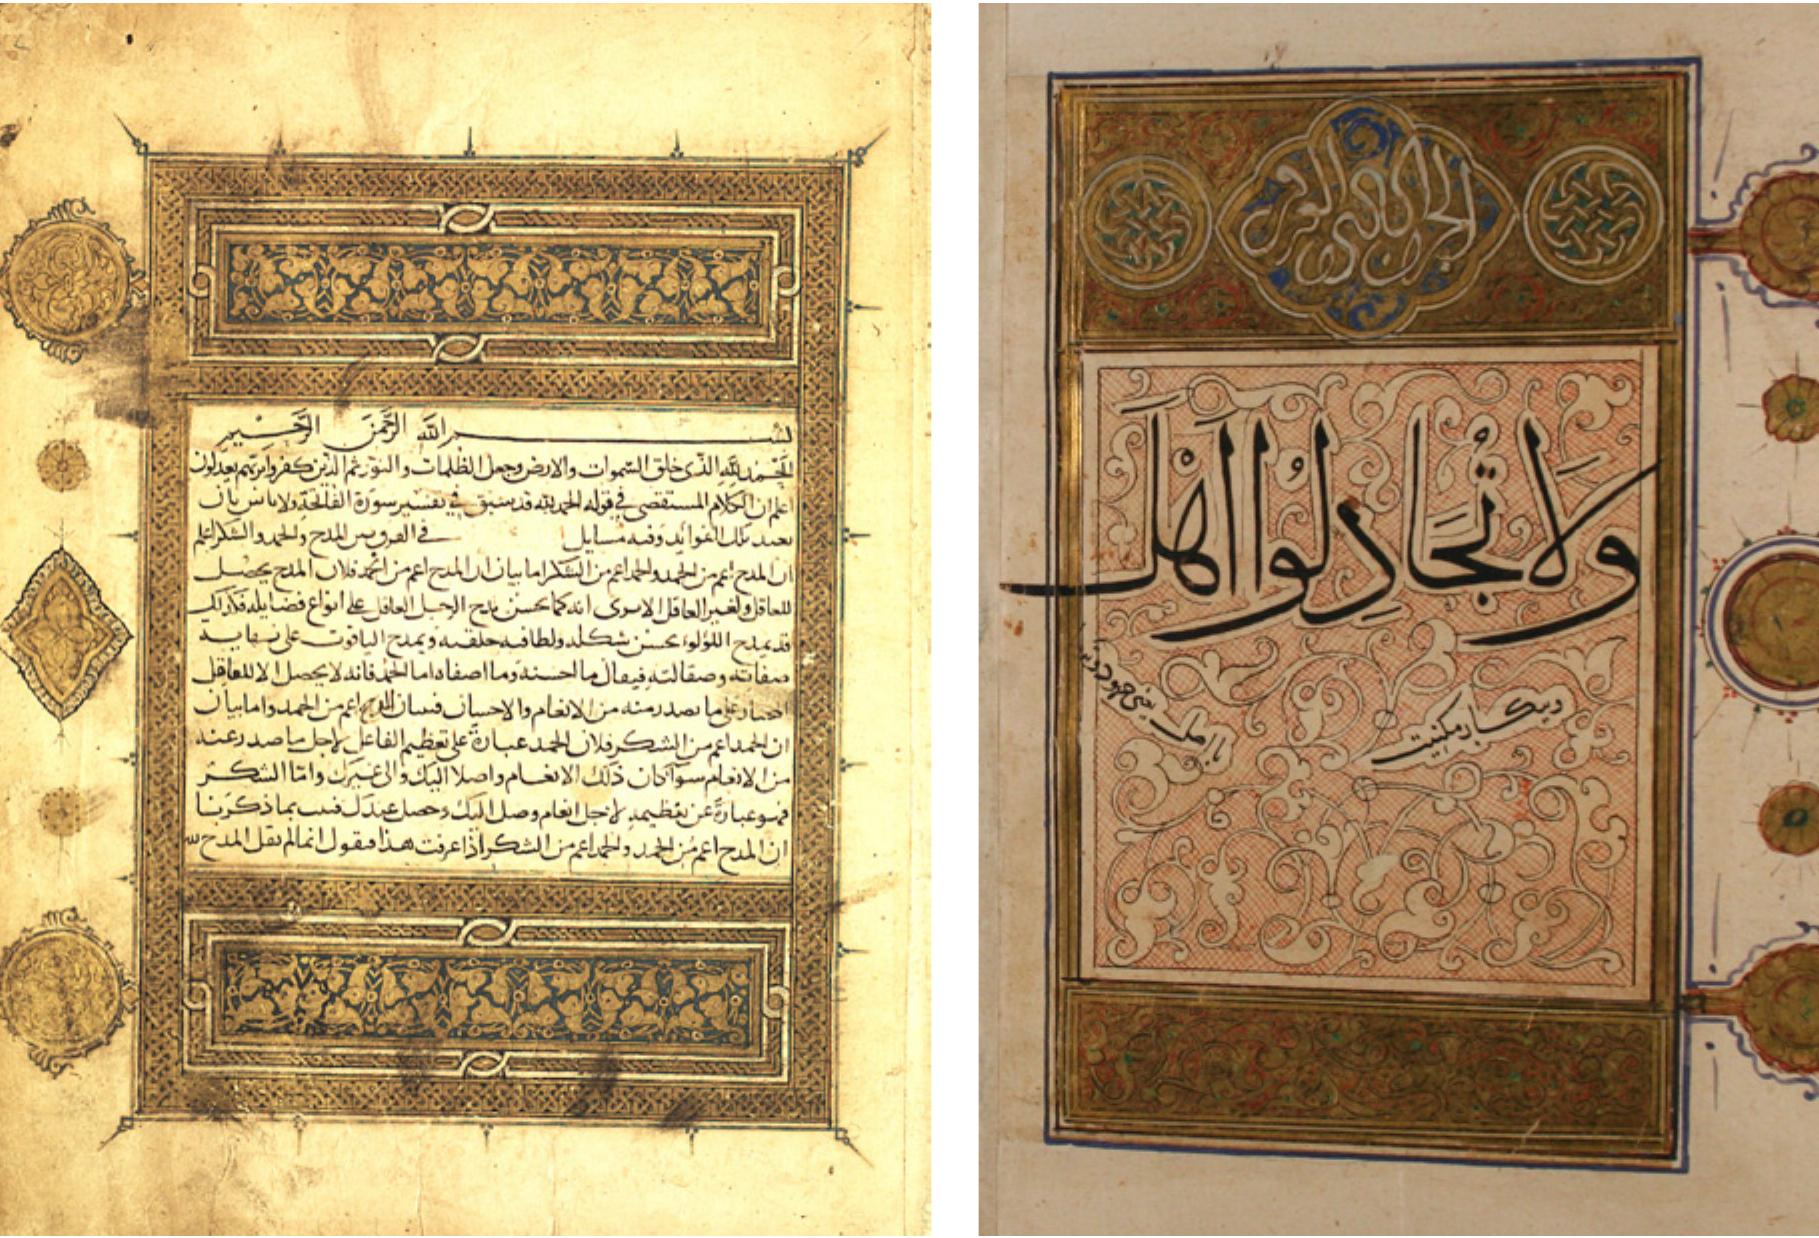 بسم الله الرحمن الرحيم
الحمد لله الذى خلق السموات والارض وجعل الظلمات والنور ثم الذين كفروا بربهم يعدلون
اعلم ان الكلام المستقصى فى قوله الحمد لله قد سبق فى تفسير سورة الفاتحة ولا باس بان
نعيد تلك الفوائد وفيه مسايل فى الفرق بين المدح والحمد والشكر اعلم
ان المدح اعم من الحمد والحمد اعم من الشكر اما بيان ان المدح اعم من الحمد فلان المدح يحصل
للعاقل ولغير العاقل الا ترى انه كما يحسن مدح الرجل العاقل على انواع فضايله فكذلك
قد يمدح اللؤلؤ بحسن شكله ولطافة خلقته ويمدح الياقوت على نهاية
صفائه وصقالته فيقال ما احسنه وما اصفاه اما الحمد فانه لا يحصل الا للفاعل
على ما يصدر منه من الانعام والاحسان المدح اعم من الحمد واما بيان
ان الحمد اعم من الشكر فلان الحمد عبارة على تعظيم الفاعل لاجل ما صدر عنه
من الانعام سوآ كان ذلك الانعام واصلا اليك والى غيرك واما الشكر
فهو عبارة عن تعظيمه لاجل انعام وصل اليك وحصل عندك فثبت بما ذكرنا
ان المدح اعم من الحمد والحمد اعم من الشكر اذا عرفت هذا فنقول انما لم يقل المدح لله
ولا تجادلوا اهل
وپيكار مكنيت
يعنى جهودان